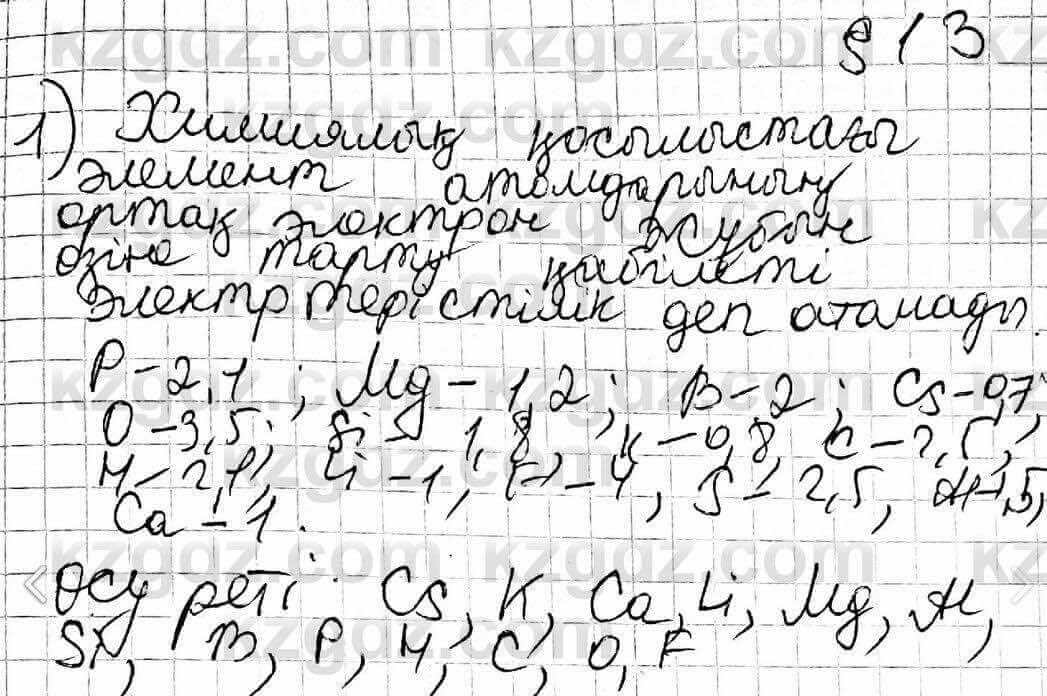 § 13
1) Химиялық қосылыстағы
элемент атомдарының
ортақ электрон жұбын
өзіне тарту қабілеті
электртерістілік деп аталады.
P – 2,1 ; Mg – 1,2 ; B – 2 ; Cs – 0,7 ;
O – 3,5 ; Si – 1,8, K – 0,8, C – 2,5,
H – 2,1, Li – 1, F – 4, S – 2,5, Al – 1,5,
Ca – 1.
Өсу реті Cs, K, Ca, Li, Mg, Al,
Si, B, P, H, C, O, F